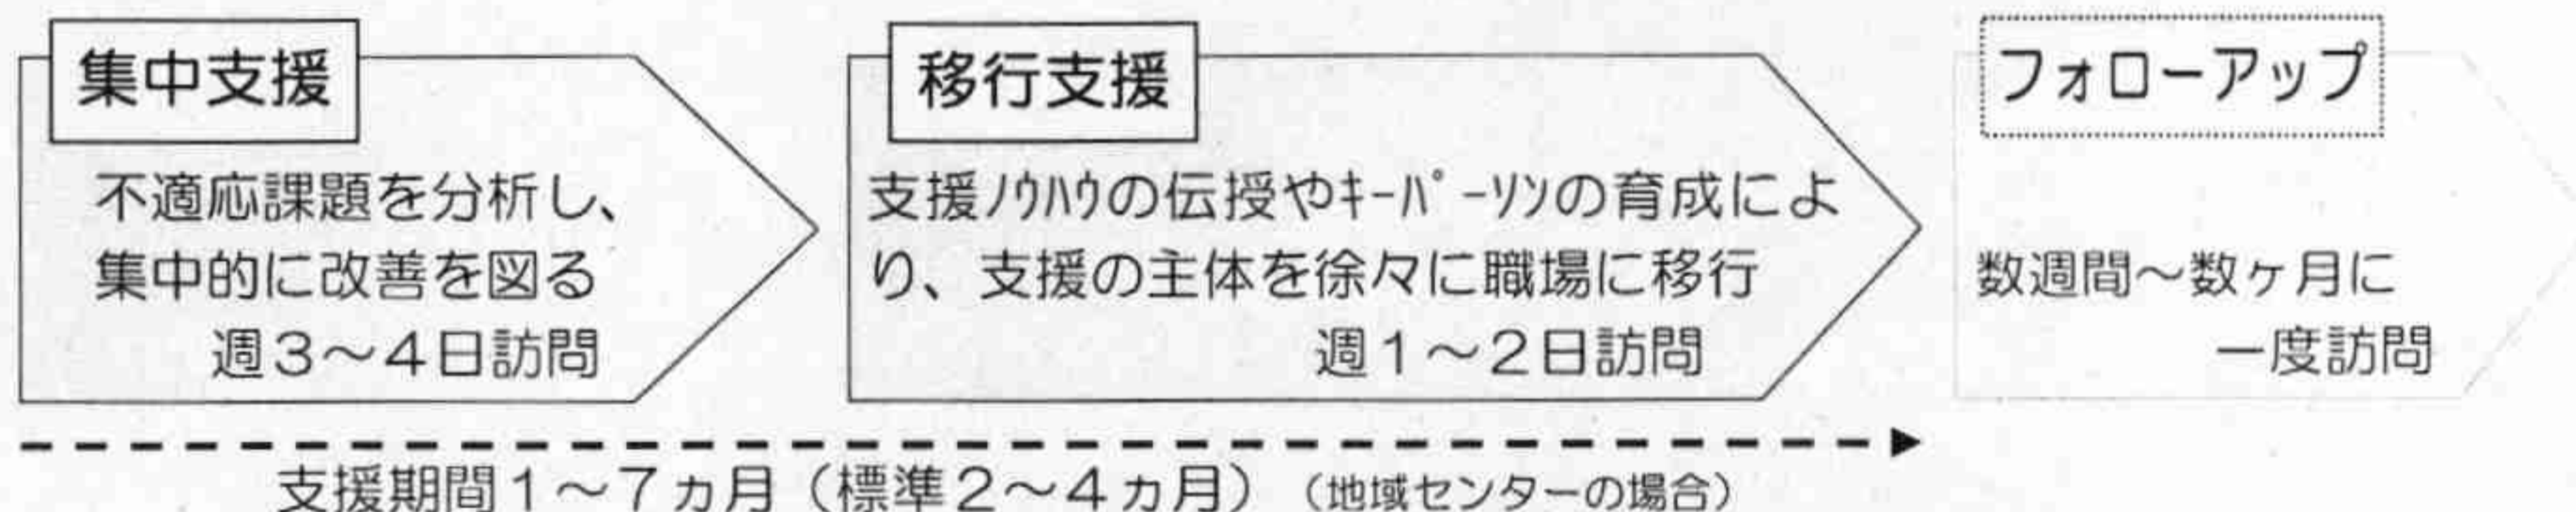 集中支援
不適応課題を分析し、
集中的に改善を図る
週３～４日訪問
移行支援
支援ﾉｳﾊｳの伝授やｷｰﾊﾟｰｿﾝの育成によ
り、支援の主体を徐々に職場に移行
週１～２日訪問
フォローアップ
数週間～数ヶ月に
一度訪問
支援期間１～７ヵ月（標準２～４ヵ月）（地域センターの場合）